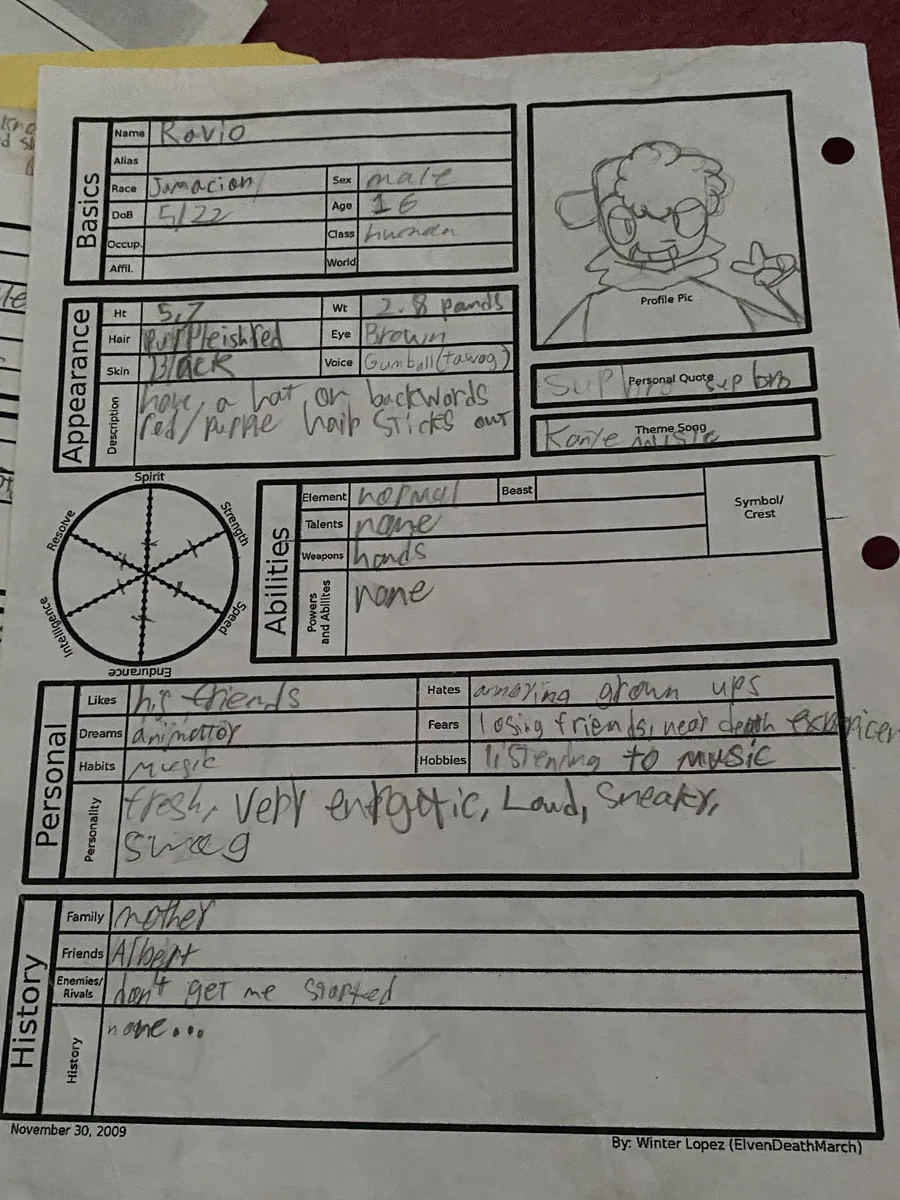 Basics
Name Ravio
Alias
Race Jamacion Sex male
DoB 5/22 Age 16
Occup. Class human
Affil. World
Profile Pic
Appearance
Ht 5,7 Wt 2.8 pands
Hair purpleish red Eye Brown
Skin Black Voice Gumball (tawog)
Description have, a hat on backwords
red/purple hair sticks out
Personal Quote
sup bro
Theme Song
Kanye music
Spirit
Strength
Speed
Endurance
Intelligence
Resolve
Abilities
Element normal Beast
Talents none
Weapons hands
Powers and Abilites none
Symbol/
Crest
Personal
Likes his friends Hates annoying grown ups
Dreams animator Fears losing friends, near death
Habits Music Hobbies listening to music
Personality fresh, very energetic, Loud, Sneaky,
Swag
History
Family mother
Friends Albert
Enemies/
Rivals don't get me started
History none...
November 30, 2009
By: Winter Lopez (ElvenDeathMarch)